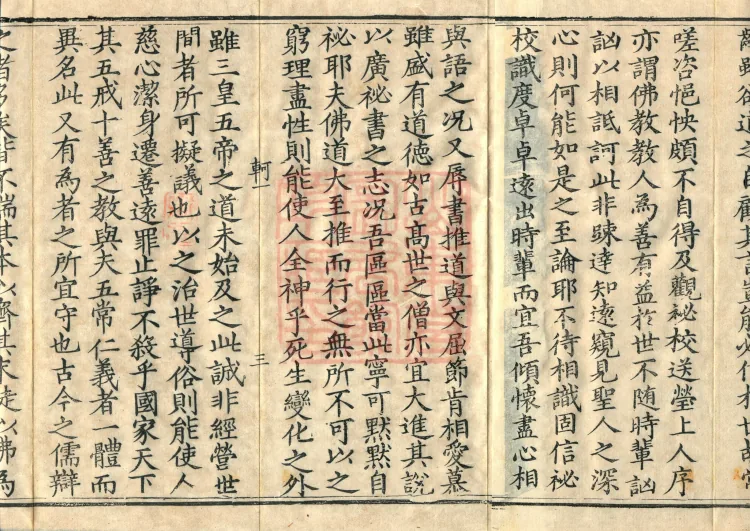 雖欲道之自顧其言豈能必信
嗟咨悒怏頗不自得及觀祕校送瑩上人序
亦謂佛教教人為善有益於世不随時輩訕
訕以相詆訶此非踈達知遠窺見聖人之深
心則何能如是之至論耶不待相識固信祕
校識度卓卓遠出時輩而宜吾傾懷盡心相
與語之况又辱書推道與文屈節肯相愛慕
雖盛有道德如古髙世之僧亦宜大進其說
以廣祕書之志况吾區區當此寧可默默自
祕耶夫佛道大至推而行之無所不可以之
窮理盡性則能使人全神乎死生變化之外
軻 三
雖三皇五帝之道未始及之此誠非經營世
間者所可擬議也以之治世導俗則能使人
慈心潔身遷善遠罪止諍不殺乎國家天下
其五戒十善之教與夫五常仁義者一體而
異名此又有為者之所宜守也古今之儒辯
之者多矣皆不揣其本以齊其末徒以佛為